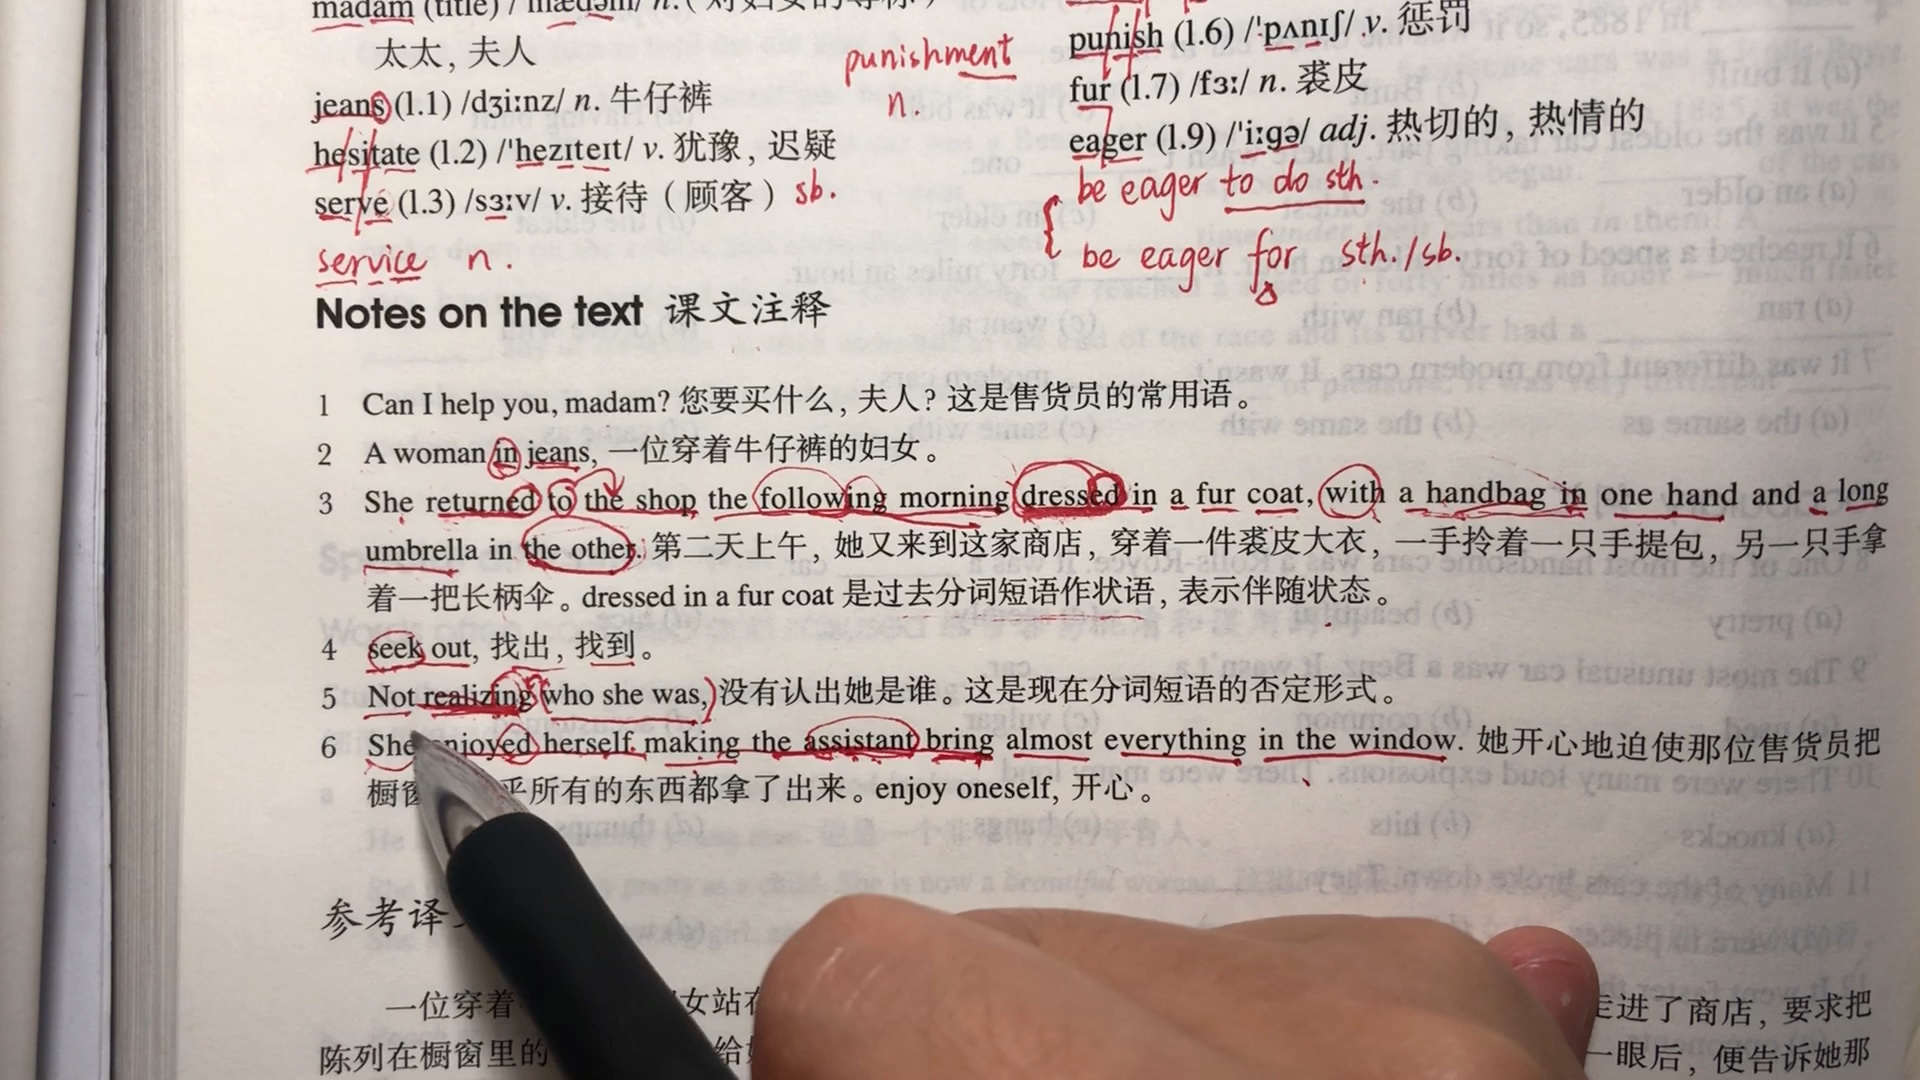 madam (title) / 'mædəm/ n. (对妇女的尊称)
太太, 夫人
jeans (1.1) /dʒi:nz/ n. 牛仔裤
hesitate (1.2) /'hezɪteɪt/ v. 犹豫, 迟疑
serve (1.3) /sɜ:v/ v. 接待 (顾客) sb.
service n.
punishment
n.
punish (1.6) /'pʌnɪʃ/ v. 惩罚
fur (1.7) /fɜ:/ n. 裘皮
eager (1.9) /'i:gə/ adj. 热切的, 热情的
be eager to do sth.
be eager for sth./sb.
Notes on the text 课文注释
1 Can I help you, madam? 您要买什么, 夫人? 这是售货员的常用语。
2 A woman in jeans, 一位穿着牛仔裤的妇女。
3 She returned to the shop the following morning dressed in a fur coat, with a handbag in one hand and a long
umbrella in the other. 第二天上午, 她又来到这家商店, 穿着一件裘皮大衣, 一手拎着一只手提包, 另一只手拿
着一把长柄伞。dressed in a fur coat 是过去分词短语作状语, 表示伴随状态。
4 seek out, 找出, 找到。
5 Not realizing who she was, 没有认出她是谁。这是现在分词短语的否定形式。
6 She enjoyed herself making the assistant bring almost everything in the window. 她开心地迫使那位售货员把
橱窗 乎所有的东西都拿了出来。enjoy oneself, 开心。
参考译
一位穿着 女站在 走进了商店, 要求把
陈列在橱窗里的 给 一眼后, 便告诉她那